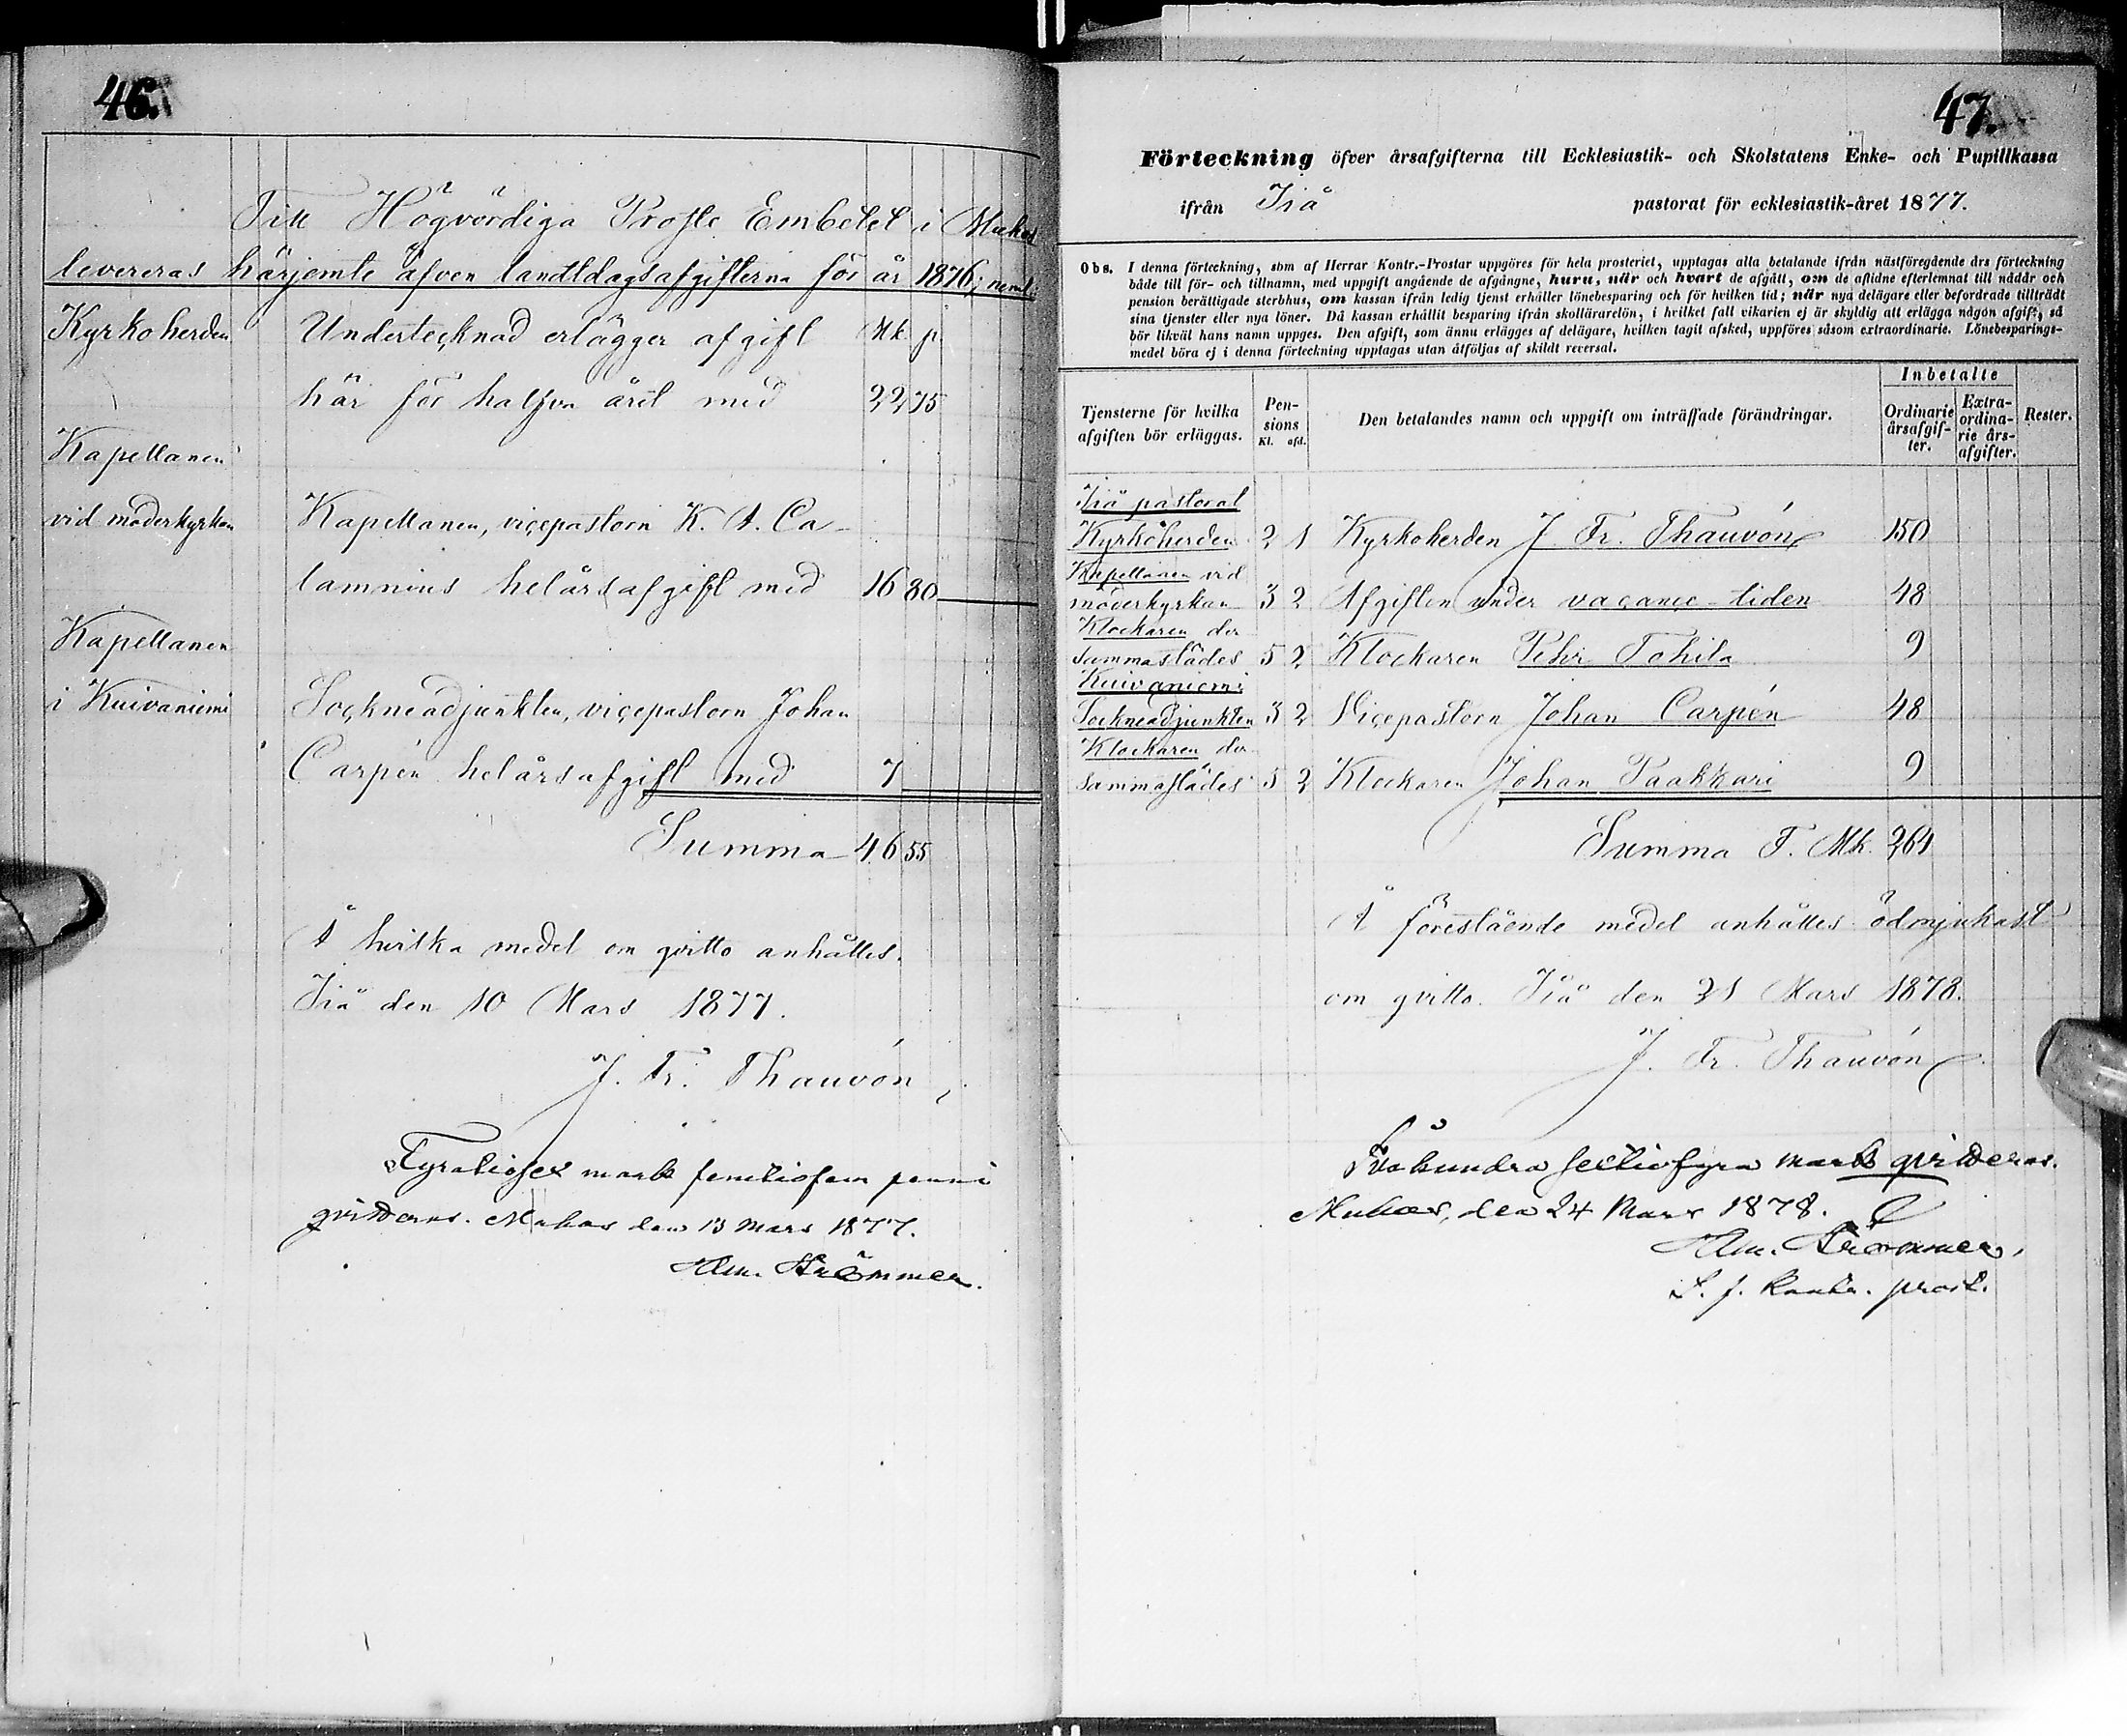 46.
Till Högvördiga Profle Embetet i Muhos
levereras härjemte äfven landtdagsafgifterna för år 1876; neml:
Kyrkoherden Undertecknad erlägger afgift Mk p
här för halfva året med 22 75
Kapellanen
vid moderkyrkan Kapellanen, vicepastorn K. A. Ca-
lamnius helårsafgift med 16 80
Kapellanen
i Kuivaniemi Sockneadjunkten, vicepastorn Johan
Carpén helårsafgift med 7
Summa 46 55
Å hvilka medel om qvitto anhålles.
Iiå den 10 Mars 1877.
J. Fr. Thauvón
Fyratiosex mark femtiofem penni
qvitteras. Muhos den 13 Mars 1877.
Strömmer.
47.
Förteckning öfver årsafgifterna till Ecklesiastik- och Skolstatens Enke- och Pupillkassa
ifrån Iiå pastorat för ecklesiastik-året 1877.
Obs. I denna förteckning, som af Herrar Kontr.-Prostar uppgöres för hela prosteriet, upptagas alla betalande ifrån nästföregående års förteckning
både till för- och tillnamn, med uppgift angående de afgångne, huru, når och hvart de afgått, om de aflidne efterlemnat till nådår och
pension berättigade sterbhus, om kassan ifrån ledig tjenst erhåller lönebesparing och för hvilken tid; når nya delägare eller befordrade tillträdt
sina tjenster eller nya löner. Då kassan erhållit besparing ifrån skollärarelön, i hvilket fall vikarien ej är skyldig att erlägga någon afgift, så
bör likväl hans namn uppges. Den afgift, som ännu erlägges af delägare, hvilken tagit afsked, uppföres såsom extraordinarie. Lönebesparings-
medel böra ej i denna förteckning upptagas utan åtföljas af skildt reversal.
Tjensterne för hvilka afgiften bör erläggas.
Pen-sions Kl. afd.
Den betalandes namn och uppgift om inträffade förändringar.
Inbetalte
Ordinarie årsafgif-ter.
Extra-ordina-rie års-afgifter.
Rester.
Iiå pastorat
Kyrkoherden 2 1 Kyrkoherden J. Fr. Thauvón 150
Kapellanen vid
moderkyrkan 3 2 Afgiften under vacance-tiden 48
Klockaren der
sammastädes 5 2 Klockaren Pehr Tohila 9
Kuivaniemi
Sockneadjunkten 3 2 Vicepastorn Johan Carpén 48
Klockaren der
sammastädes 5 2 Klockaren Johan Paakkari 9
Summa F. Mk. 264
Å förestående medel anhålles ödmjukast
om qvitto. Iiå den 21 Mars 1878.
J. Fr. Thauvón
Tvåhundra sextiofyra mark qvitteras.
Muhos, den 24 Mars 1878.
Strömmer,
t. f. Kontr. prost.